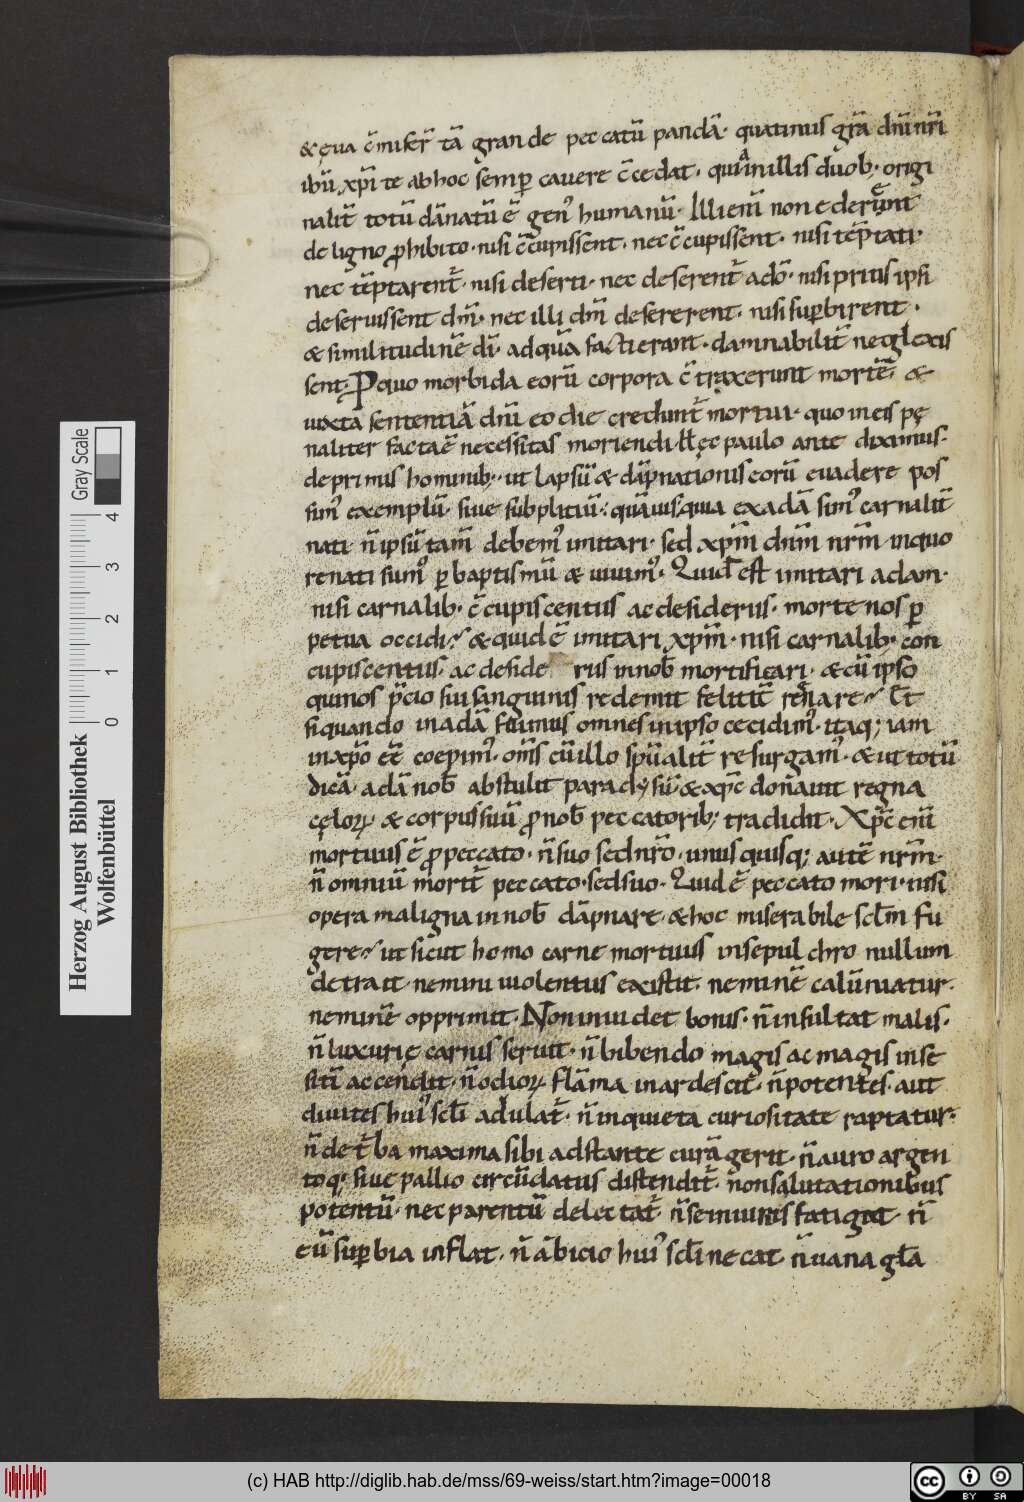 & ęua c̄miser̄ tā grande peccatū pandā· quatinus gr̄a dn̄i nr̄i
ihū xp̄i te ab hoc semp̲ cauere c̄cedat· quia in illis duob;· origi
nalit̄ totū dānatū ē gen᾽ humanū· Illi enī non ederent
de ligno ꝓhibito· nisi c̄cupissent· nec c̄cupissent· nisi tēptati·
nec tēptarent̄· nisi deserti· nec deserent̄ a dō· nisi prius ipsi
deseruissent dm̄· nec illi dm̄ desererent· nisi sup̲birent·
& similitudinē dī· ad quā facti erant· damnabilit̄ neglexis
sent· Pequo morbida eorū corpora c̄traxerunt mortē· &
iuxta sententiā dn̄i eo die credunt̄ mortui· quo in eis pę
naliter facta ē necessitas moriendi· Hęc paulo ante diximus·
de primis hominib;· ut lapsū & dāpnationis eorū euadere pos
sim᾽ exemplū· siue subplitiū· quāuis quia ex adā sim᾽ carnalit̄
nati n̄ ipsū tam̄ debem᾽ imitari· sed xp̄m dn̄m nr̄m in quo
renati sum᾽ p̲ baptismū & uiuim᾽· Quid est imitari adam·
nisi carnalib;· c̄cupiscentiis ac desideriis· morte nos p̲
petua occidi? & quid ē imitari xp̄m· nisi carnalib;· con
cupiscentiis· ac deside riis in nob̄ mortificari· & cū ipso
qui nos p̄cio sui sanguinis redemit felit̄ regnare? Et
si quando in adā fuimus omnes in ipso cecidim᾽· itaq; iam
in xp̄o eē coepim᾽· om̄s cū illo sp̄ualit̄ resurgam᾽· & ut totū
dicā· adā nob̄ abstulit paradysū· & xp̄c donauit regna
cęloꝝ & corpus suū ꝓ nob̄ peccatorib; tradidit· Xp̄c enī
mortuus ē ꝓ peccato· n̄ suo sed nr̄o· unusquisq; autē nr̄m·
n̄ omniū morit̄ peccato· sed suo· Quid ē peccato mori· nisi
opera maligna in nob̄ dāpnare· & hoc miserabile scl̄m fu
gere? ut sicut homo carne mortuus in sepulchro nullum
detrait· nemini uiolentus existit· neminē calūniatur·
neminē opprimit· Non inuidet bonis· n̄ insultat malis·
n̄ luxurię carnis seruit· n̄ bibendo magis ac magis in se
sitī accendit· n̄ odioꝝ flāma inardescit· n̄ potentes· aut
diuites hui᾽ scl̄i adulat̄· n̄ inquieta curiositate raptatur·
n̄ de t̄ba maxima sibi adstante curā gerit· n̄ auro argen
toq; siue pallio circūdatus distendit̄· n̄ on salutationibus
potentū· nec parentū delectat̄ n̄ se iniuriis fatigat n̄
eū sup̲bia inflat· n̄ ābicio hui᾽ scl̄i necat n̄ uana gl̄a
Herzog August Bibliothek
Wolfenbüttel
0 1 2 3 4
Gray Scale
(c) HAB http://diglib.hab.de/mss/69-weiss/start.htm?image=00018
cc BY SA